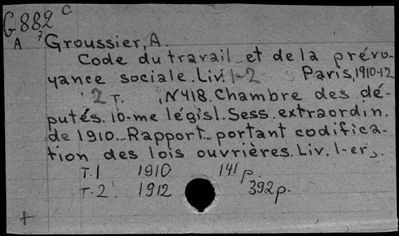 G 882 c
A 7 Groussier, A.
Code du travail et de la prévo-
yance sociale. Liv. 1-2 Paris, 1910-12
2 T. N 418. Chambre des dé-
putés. 10-me législ. Sess. extraordin.
de 1910. Rapport portant codifica-
tion des lois ouvrières. Liv. 1-er.
T. 1 1910 141 p.
T. 2 1912 392 p.
+